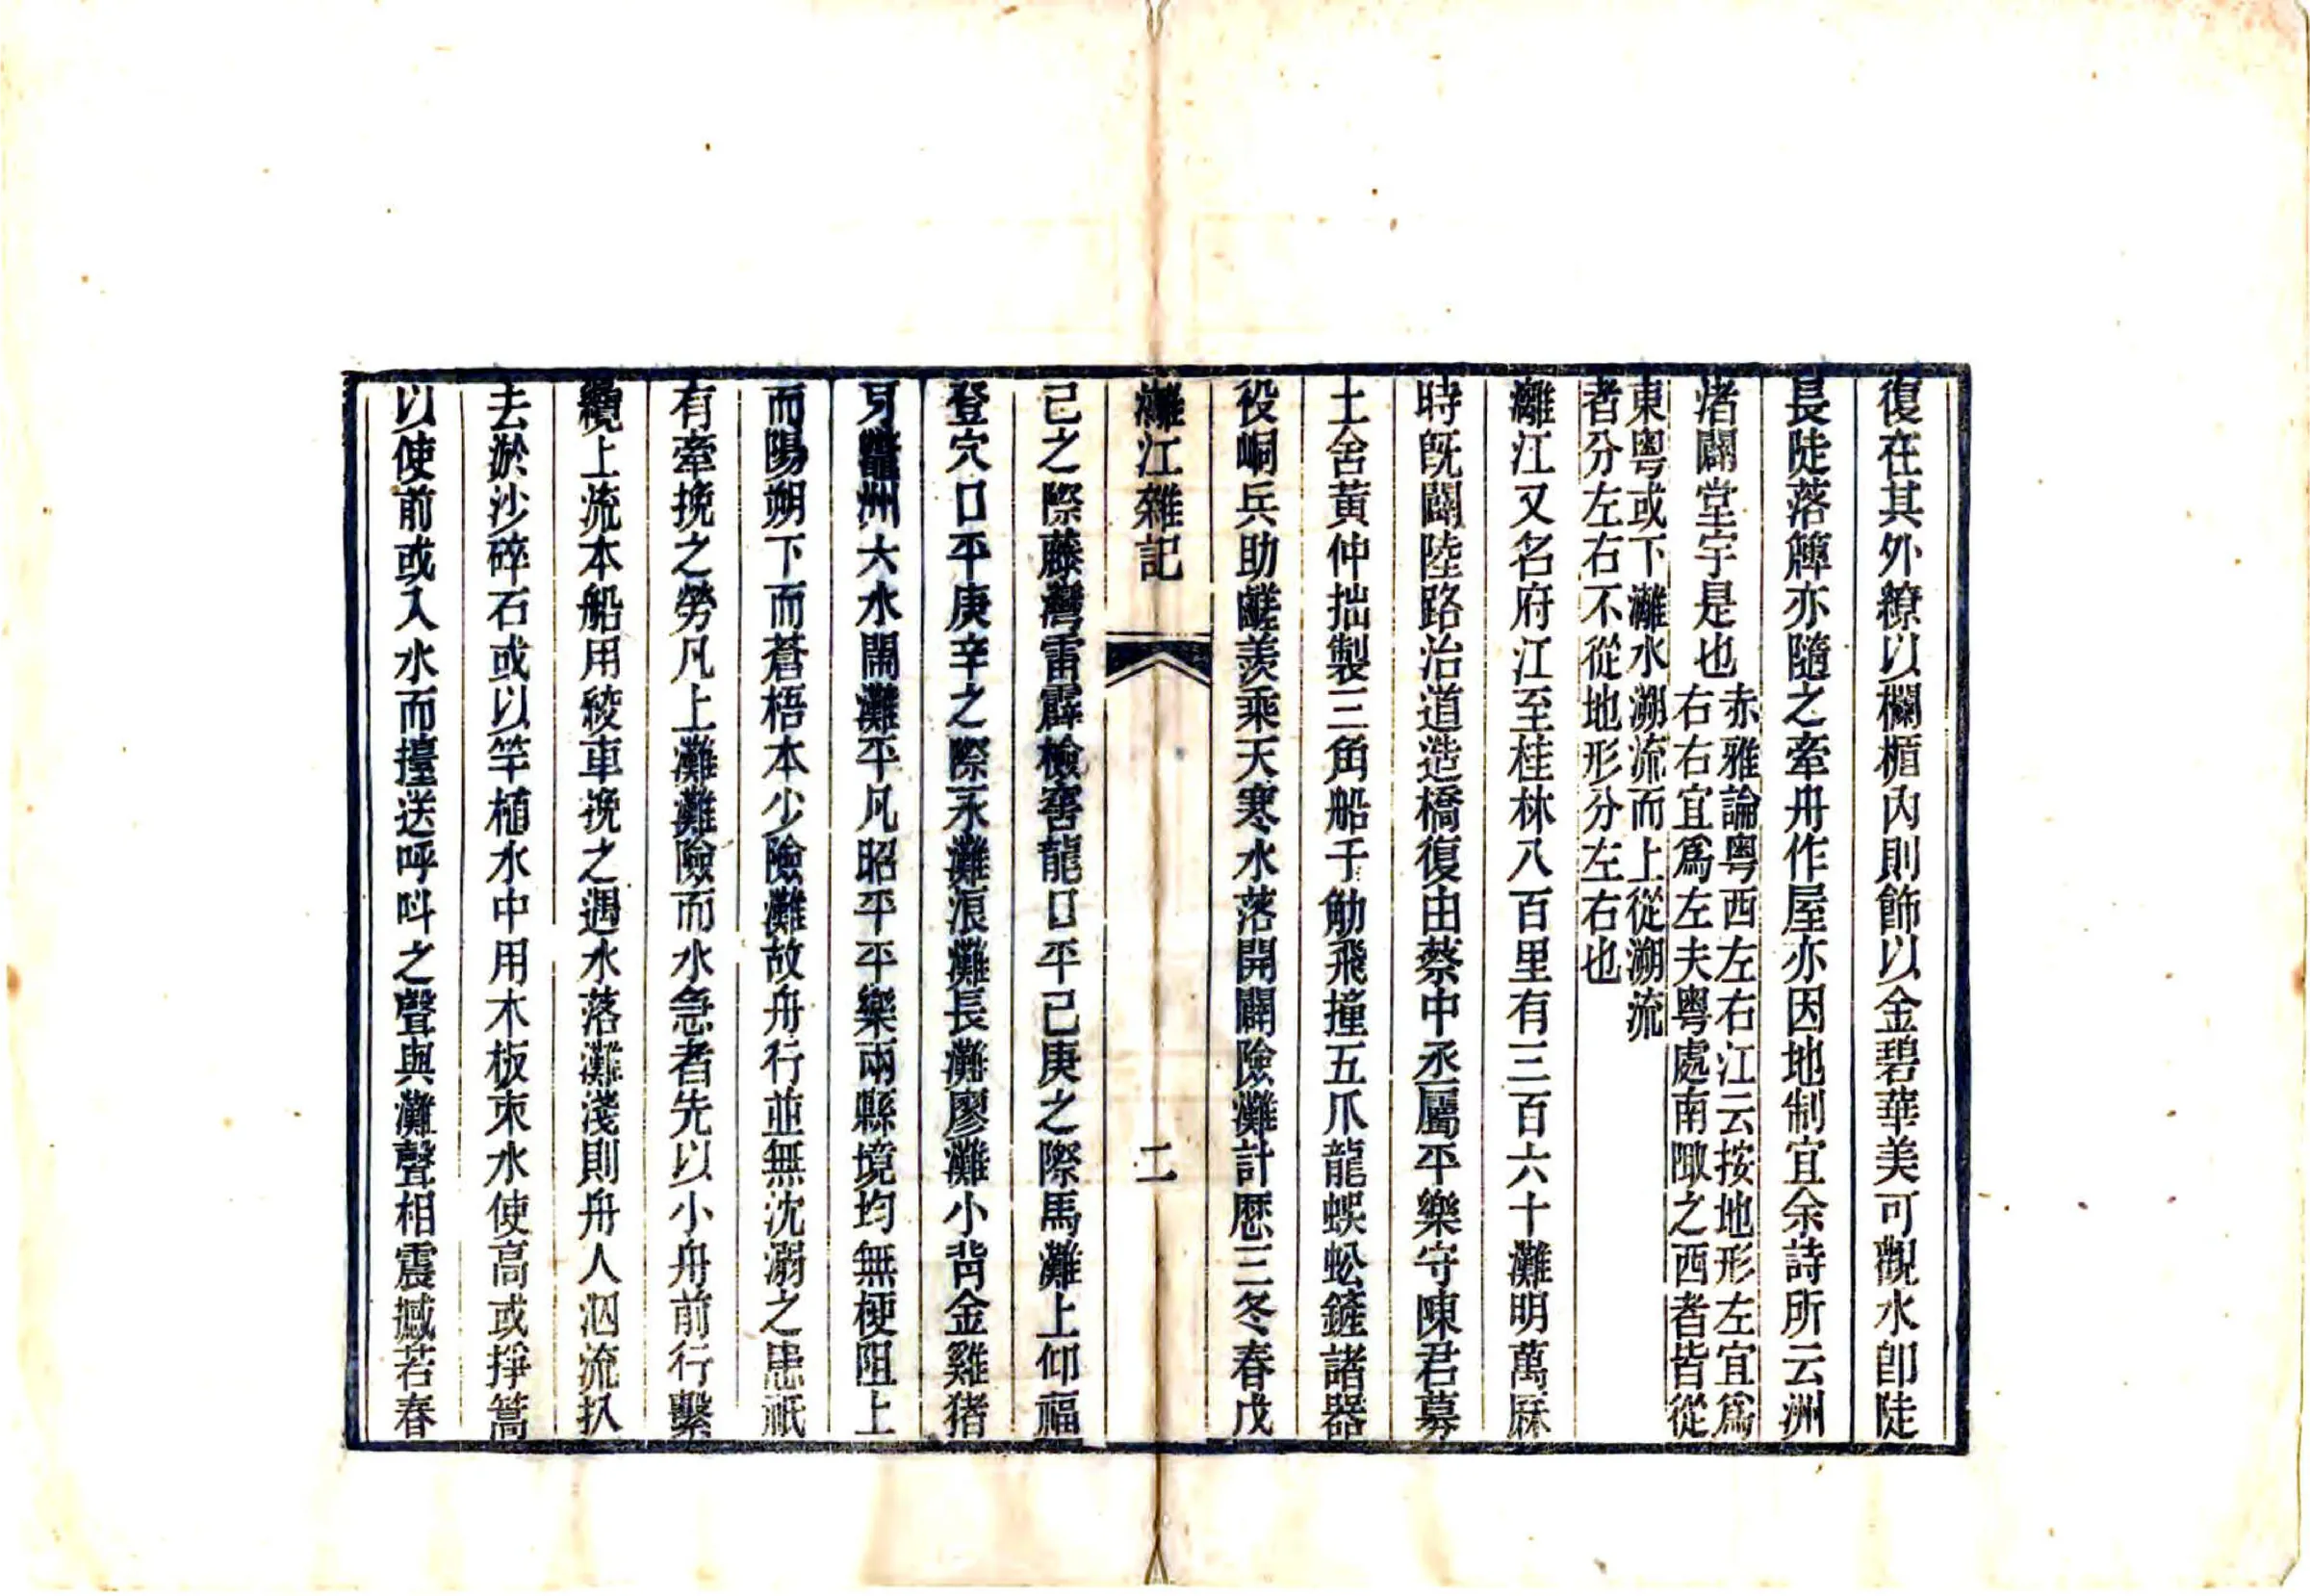 復在其外繚以欄楯內則飾以金碧華美可觀水卽陡
長陡落簰亦隨之牽舟作屋亦因地制宜余詩所云洲
渚闢堂宇是也
赤雅論粵西左右江云按地形左宜爲
右右宜爲左夫粵處南陬之西者皆從
東粵或下灕水溯流而上從溯流
者分左右不從地形分左右也
灕江又名府江至桂林八百里有三百六十灘明萬厤
時旣闢陸路治道造橋復由蔡中丞屬平樂守陳君募
土舍黃仲拙製三角船千觔飛撞五爪龍蜈蚣鏟諸器
役峒兵助鹺羨乘天寒水落開闢險灘計歷三冬春戊
灕江雜記
二
己之際藤灣雷霹檢窖龍口平己庚之際馬灘上仰福
登穴口平庚辛之際永灘浪灘長灘廖灘小背金雞猪
牙龍州大水閘灘平凡昭平平樂兩縣境均無梗阻上
而陽朔下而蒼梧本少險灘故舟行並無沈溺之患祇
有牽挽之勞凡上灘灘險而水急者先以小舟前行繫
纜上流本船用絞車挽之遇水落灘淺則舟人泅流扒
去淤沙碎石或以竿植水中用木板朿水使高或掙篙
以使前或入水而擡送呼叫之聲與灘聲相震撼若春